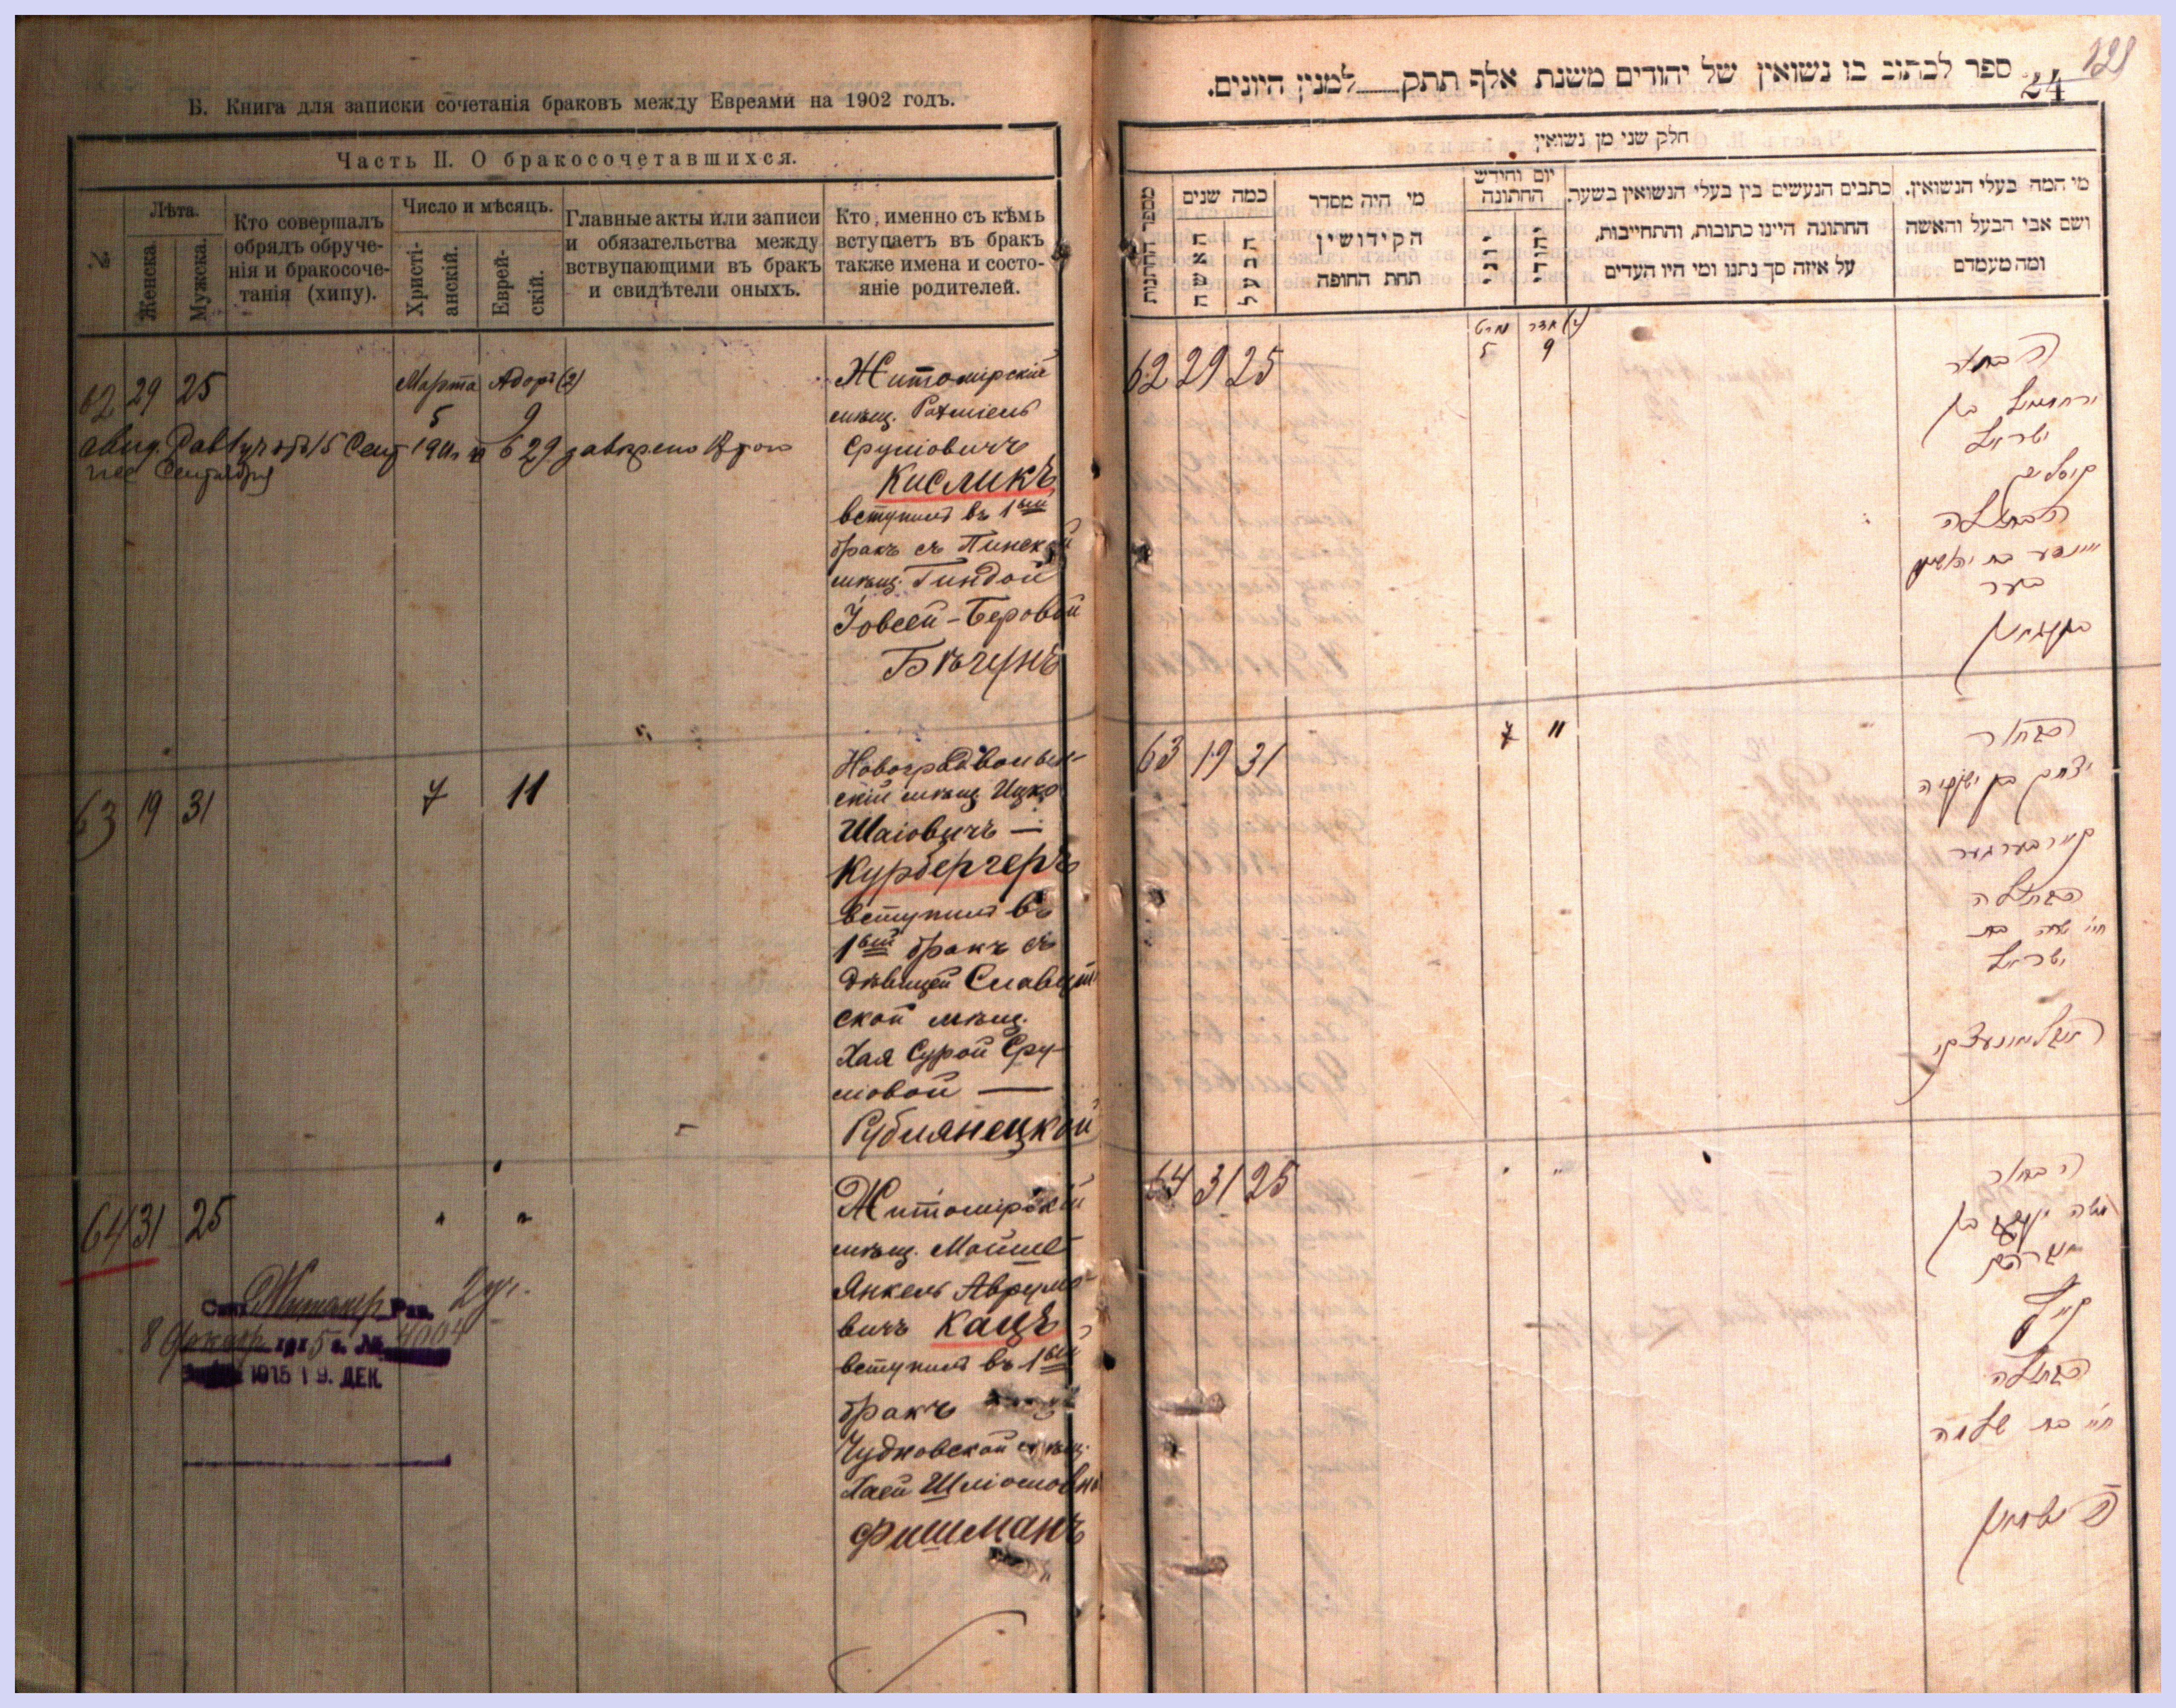 Б. Книга для записки сочетанія браковъ между Евреями на 1902 годъ.
Часть II. О бракосочетавшихся.
№
Лѣта.
Женска.
Мужска.
Кто совершалъ
обрядъ обруче-
нія и бракосоче-
танія (хипу).
Число и мѣсяцъ.
Христі-
анскій.
Еврей-
скій.
Главные акты или записи
и обязательства между
вствупающими въ бракъ
и свидѣтели оныхъ.
Кто, именно съ кѣмъ
вступаетъ въ бракъ
также имена и состо-
яніе родителей.
62 29 25
Марта Адоръ (2)
5 9
Житомірскій
мѣщ. Рахміель
Сруліовичъ
Кисликъ
вступилъ въ 1ый
бракъ съ Пинской
мѣщ. Гиндой
Іовсей-Беровой
Бѣгунъ
63 19 31
7 11
Новоградволын-
скій мѣщ Ицко
Шаіовичъ —
Курбергеръ
вступилъ въ
1ый бракъ съ
дѣвицей Славут
ской мѣщ.
Хая Сурой Сру-
ліовой —
Рублянецкой
64 31 25
Житомірскій
мѣщ. Мойше
Янкель Аврумо-
вичъ Кацъ
вступилъ въ 1ый
бракъ
Чудновской мѣщ.
Хаей Шліомовно
Фишманъ
1915 19. ДЕК.
121
24
ספר לכתוב בו נשואין של יהודים משנת אלף תתק למנין היונים.
חלק שני מן נשואין
מספר החתונות
כמה שנים
האשה
הבעל
מי היה מסדר
הקידושין
תחת החופה
יום וחודש
החתונה
יוני
יהודי
כתבים הנעשים בין בעלי הנשואין בשער.
החתונה היינו כתובות, והתחייבות,
על איזה סך נתנו ומי היו העדים
מי המה בעלי הנשואין.
ושם אבי הבעל והאשה
ומה מעמדם
62 29 25
מרט אדר (2)
5 9
הבחור
ירחמיאל בן
ישראל
קיסליק
הבתולה
הינדע בת יהושע
בער
63 19 31
7 11
הבחור
יצחק בן ישעיה
קורבערגער
הבתולה
חיי שרה בת
ישראל
64 31 25
הבחור
משה יעקב בן
אברהם
הבתולה
חיי בת שלמה
פישמאן